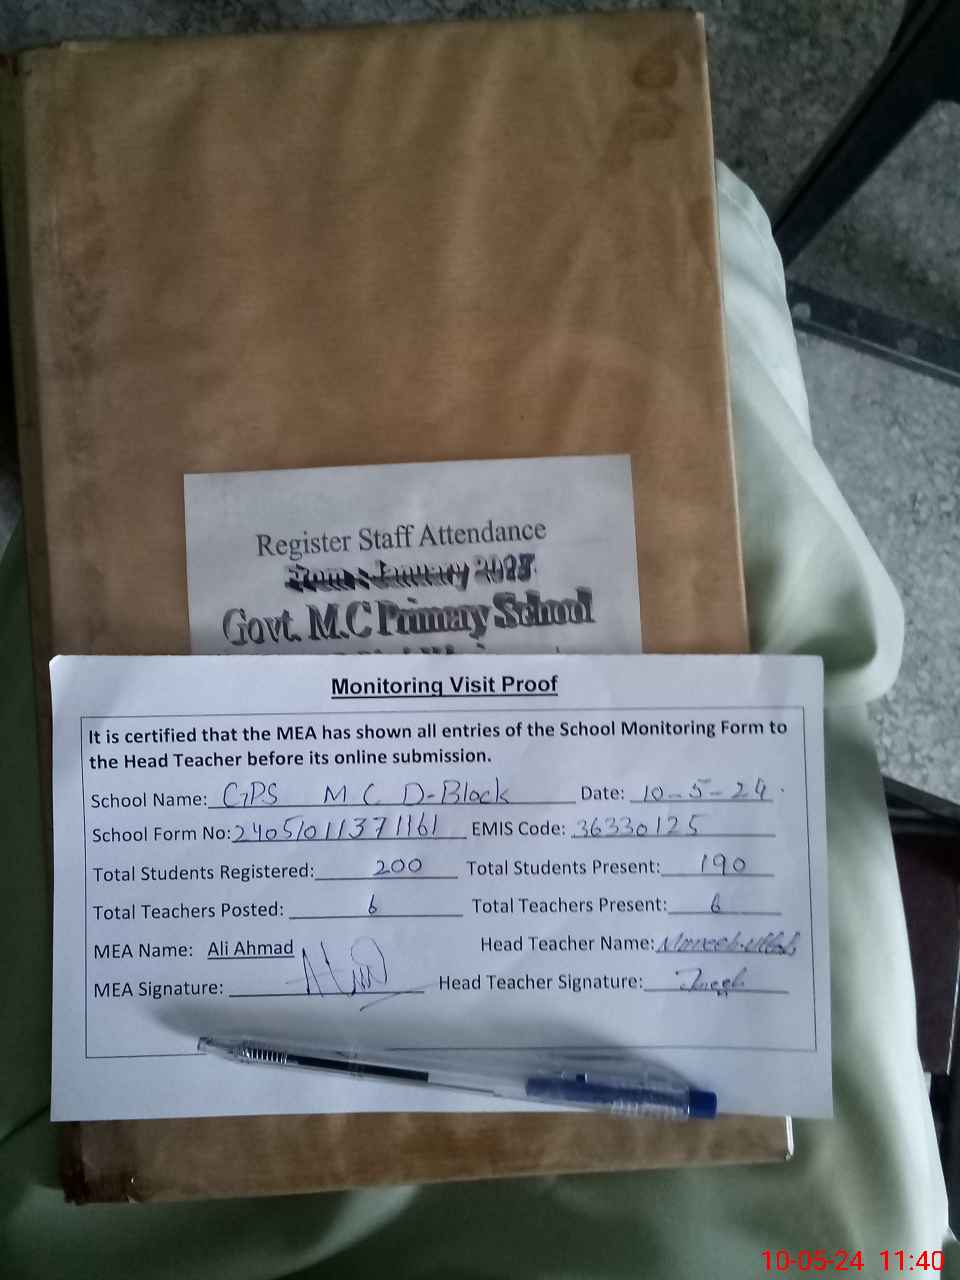 Register Staff Attendance
From : January 2023
Govt. M.C Primary School
Monitoring Visit Proof
It is certified that the MEA has shown all entries of the School Monitoring Form to
the Head Teacher before its online submission.
School Name: GPS M C D-Block Date: 10-5-24
School Form No: 24051011371161 EMIS Code: 36330125
Total Students Registered: 200 Total Students Present: 190
Total Teachers Posted: 6 Total Teachers Present: 6
MEA Name: Ali Ahmad Head Teacher Name:
MEA Signature: Head Teacher Signature:
10-05-24 11:40